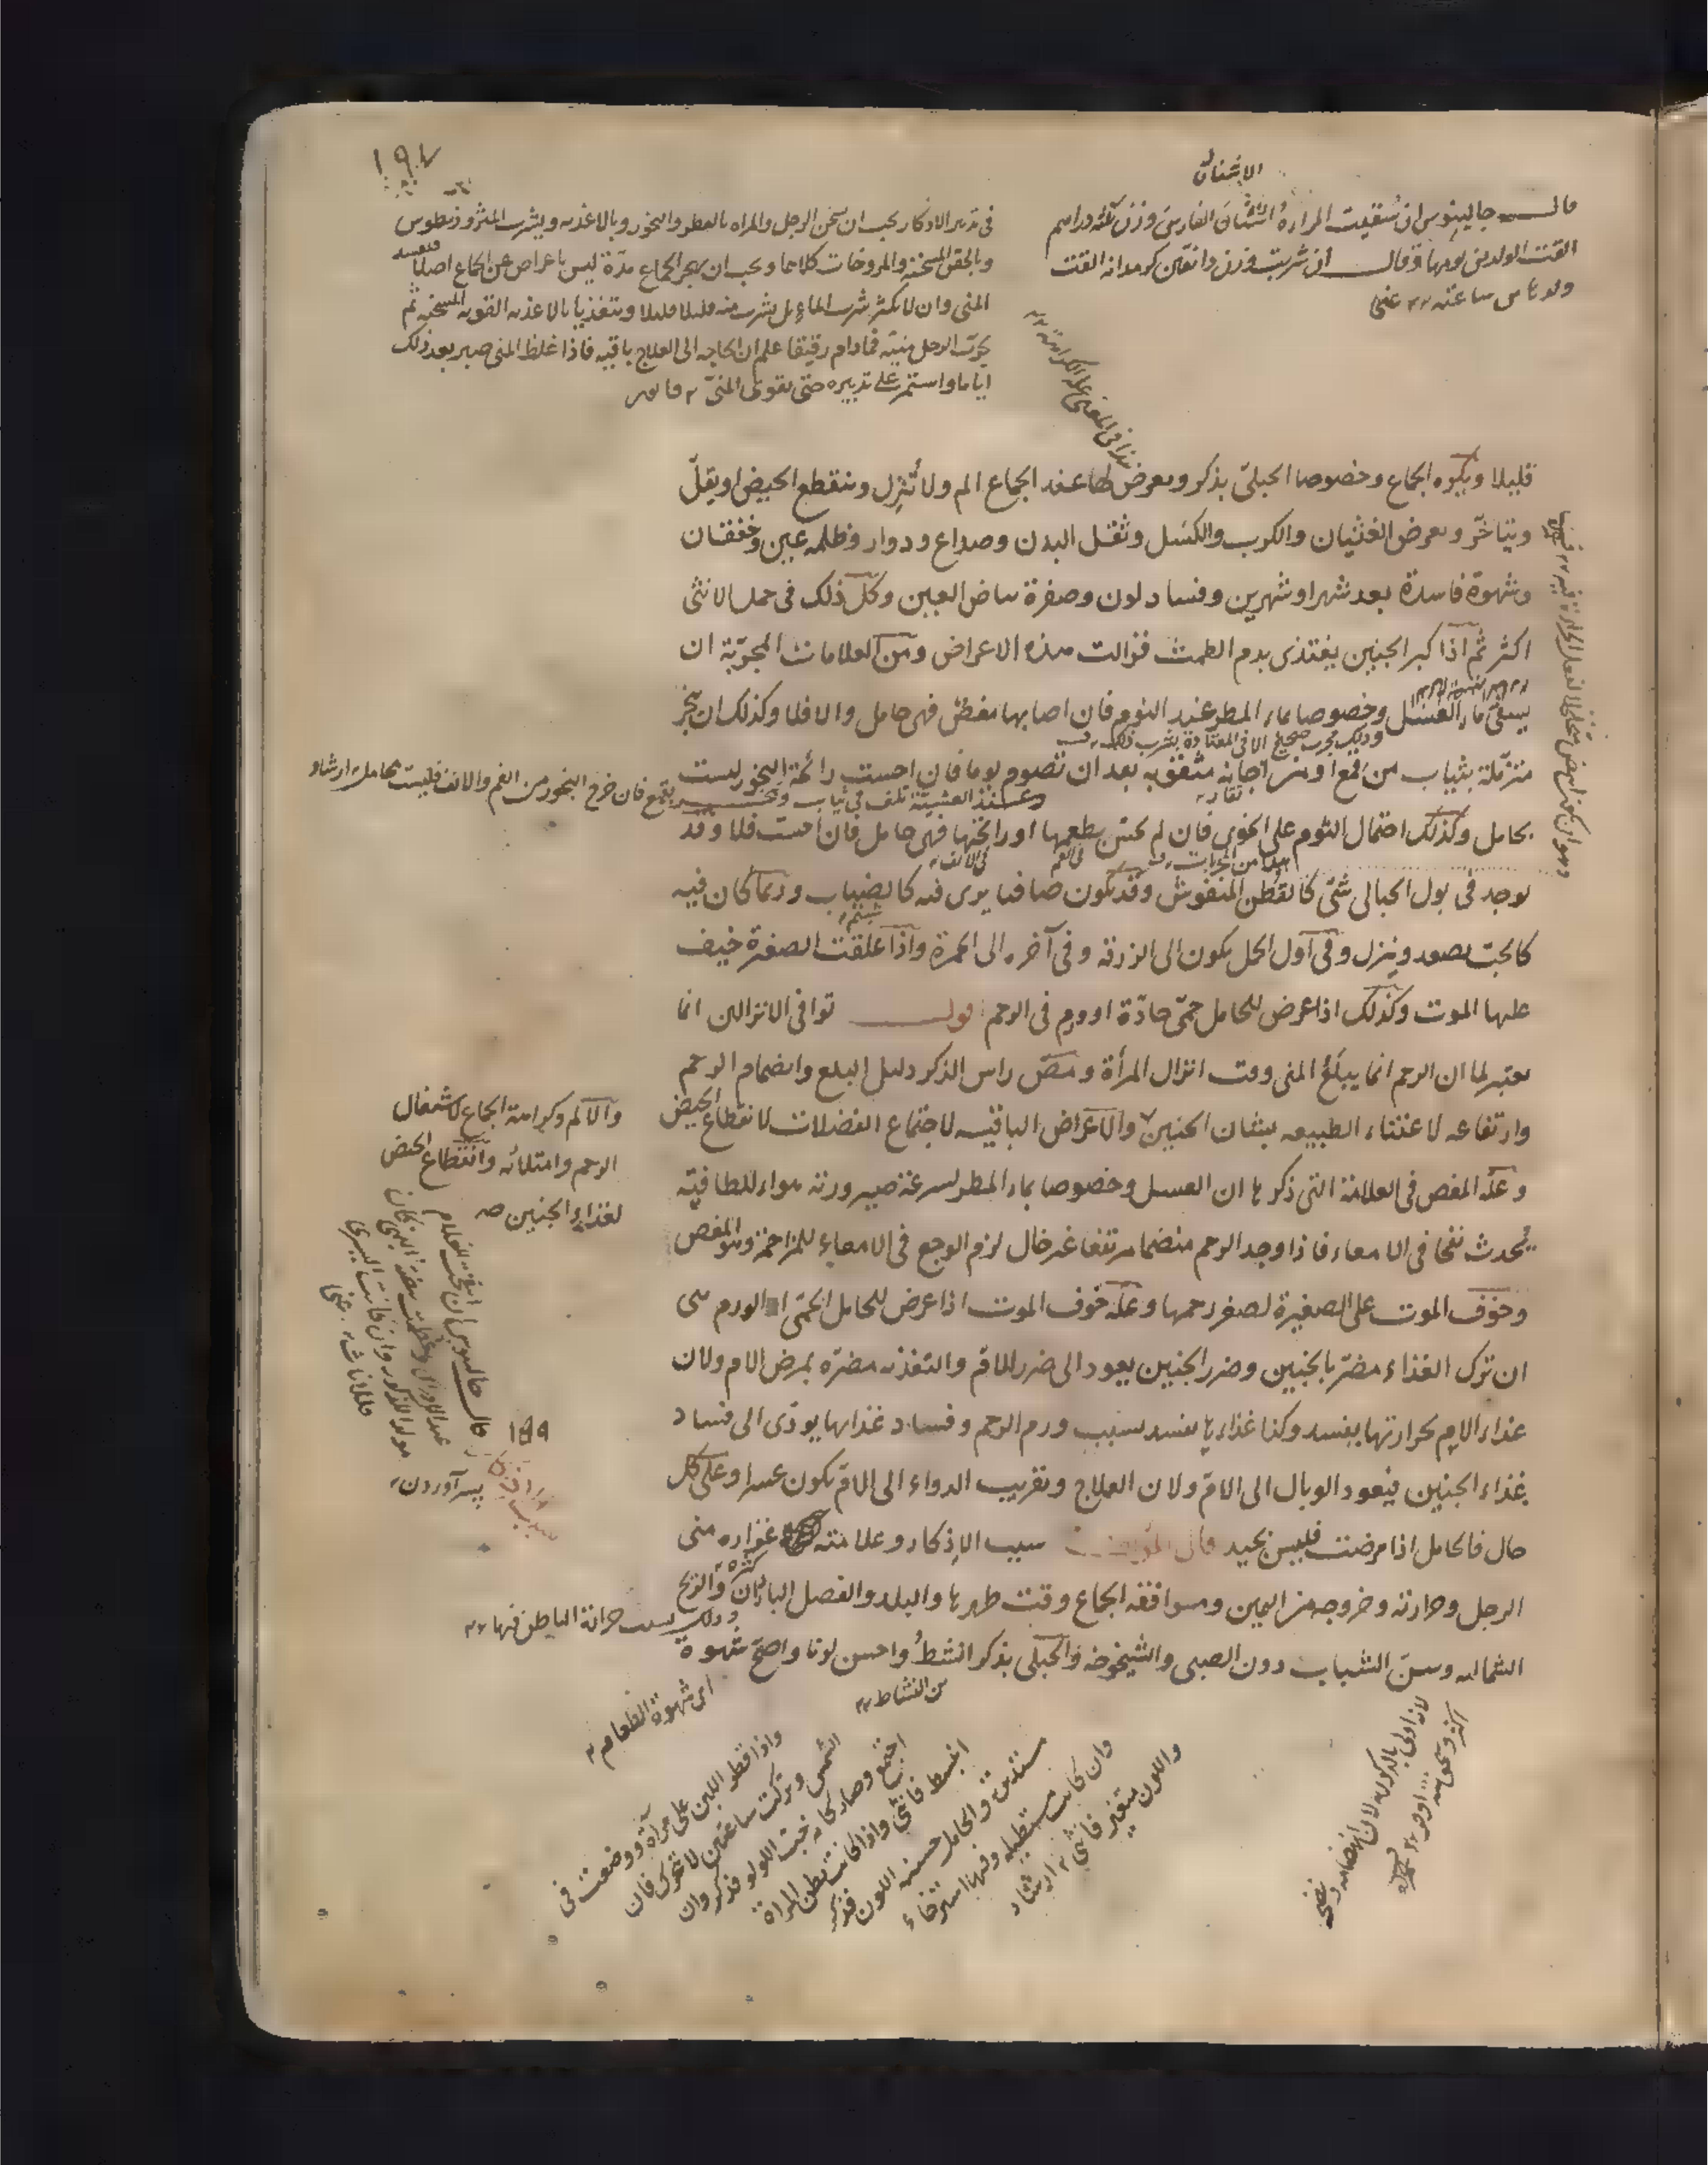 ١٩٧
الاشنان
قال جالينوس ان سقيت المراة الاشنان الفارسى وزن ثلثة دراهم
القت الولد من يومها وقال ان شربت وزن دانقين كرمدانه القت
ولدها من ساعته غنى
فى تدبير الاذكار يجب ان يسخن الرجل والمراه بالعطر والبخور وبالاغذيه ويشرب المثروذيطوس
وبالحقن المسخنة والمروخات كلاهما ويجب ان يهجر الجماع مدة ليس باعراض عن الجماع اصلا فيفسد
المنى وان لا يكثر شرب الماء بل يشرب منه قليلا قليلا ويتغذيا بالاغذيه القويه المسخنه ثم
يجرب الرجل منيه فمادام رقيقا علم ان الحاجه الى العلاج باقيه فاذا غلظ المنى صبر بعد ذلك
اياما واستمر على تدبيره حتى يقوى المنى
قليلا ويكره الجماع وخصوصا الحبلى بذكر ويعرض لها عند الجماع الم ولا تنزل وينقطع الحيض او يقل
ويتاخر ويعرض الغثيان والكرب والكسل وثقل البدن وصداع ودوار وظلمه عين وخفقان
وشهوة فاسدة بعد شهر او شهرين وفساد لون وصفرة بياض العين وكل ذلك فى حمل الانثى
اكثر ثم اذا كبر الجنين يغتذى بدم الطمث فزالت هذه الاعراض ومن العلامات المجربة ان
يسقى ماء العسل وخصوصا بماء المطر عند النوم فان اصابها مغص فهى حامل والا فلا وكذلك ان تبخر
وذلك مجرب صحيح الا فى المعتادة بشرب ذلك
متزملة بثياب من قمع او من اجانه مثقوبه بعد ان تصوم يوما فان احست رائحة البخور ليست
وعند العشية تلف فى ثياب وتبخر بقمع فان خرج البخور من الفم والانف فليست بحامل ارشاد
بحامل وكذلك احتمال الثوم على الخوى فان لم تحس بطعمها او رائحتها فهى حامل فان احست فلا وقد
هذا من المجربات
فى الفم
فى الانف
يوجد فى بول الحبالى شئ كالقطن المنفوش وقد يكون صافيا يرى فيه كالضباب وربما كان فيه
شبنم
كالحب يصعد وينزل وفى اول الحمل يكون الى الزرقه وفى آخره الى الحمرة واذا علقت الصغرة خيف
عليها الموت وكذلك اذا عرض للحامل حمى حادة او ورم فى الرحم قوله توافى الانزالين انما
يعتبر لما ان الرحم انما يبلغ المنى وقت انزال المرأة ومص راس الذكر دليل البلع وانضمام الرحم
وارتفاعه لاعتناء الطبيعه بشان الجنين والاعراض الباقيه لاجتماع الفضلات لانقطاع الحيض
وعلة المغص فى العلامة التى ذكرها ان العسل وخصوصا بماء المطر لسرعة صيرورته هواء للطافته
يحدث نفخا فى الامعاء فاذا وجد الرحم منضما مرتفعا غير خال لزم الوجع فى الامعاء للمزاحمة وهو المغص
وخوف الموت على الصغيرة لصغر رحمها وعلة خوف الموت اذا عرض للحامل الحمى او الورم هى
ان ترك الغذاء مضر بالجنين وضرر الجنين يعود الى ضرر الام والتغذيه مضرة بمرض الام ولان
غذاء الام بحرارتها يفسد وكذا غذاءها يفسد بسبب ورم الرحم وفساد غذائها يودى الى فساد
غذاء الجنين فيعود الوبال الى الام ولان العلاج وتقريب الدواء الى الام يكون عسرا وعلى كل
حال فالحامل اذا مرضت فليس بجيد قال المؤلف سبب الاذكار وعلامته غزاره منى
الرجل وحرارته وخروجه من اليمين وموافقه الجماع وقت طهرها والبلد والفصل الباردان والريح
الشماليه وسن الشباب دون الصبى والشيخوخه والحبلى بذكر انشط واحسن لونا واصح شهوة
كثره
وذلك بسبب حرانة الباطن فيها
من النشاط
اى شهوة الطعام
والالم وكراهة الجماع لاشتغال
الرحم وامتلائه وانقطاع الحيض
لغذاء الجنين صه
١٨٩
پسر آوردن
واذا قطر اللبن على مرآة ووضعت فى
الشمس وتركت ساعتين لا تحرك فان
اجتمع وصار كانه حبت اللولو فذكر وان
انبسط فانثى واذا كانت بطن المراة
مستديرة والحامل حسنه اللون فذكر
وان كانت مستطيله وفيها استرخاء
واللون متغير فانثى ارشاد